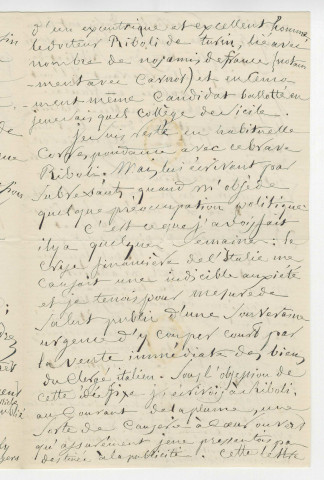 d'un excentrique et excellent homme,
le docteur Riboli de Turin, lié avec
nombre de nos amis de France (notam
ment avec Carnot) et en ce mo
ment même candidat ballotté en
je ne sais quel collège de Sicile.
Je suis resté en habituelle
correspondance avec ce brave
Riboli. Mais lui écrivant par
soubresauts, quand m'obsède
quelque préoccupation politique.
C'est ce que j'avais fait
il y a quelques semaines: la
crise financière de l'Italie me
causait une indicible anxiété
et je tenois pour mesure de
salut public d'une souveraine
urgence d'y couper court par
la vente immédiate des biens
du Clergé italien. Sous l'obsession de
cette idée fixe j'écrivois à Riboli
au courant de la plume, une
sorte de causerie à coeur ouvert
qu'assurément je ne pressentois pas
destinée à la publicité. Cette lettre